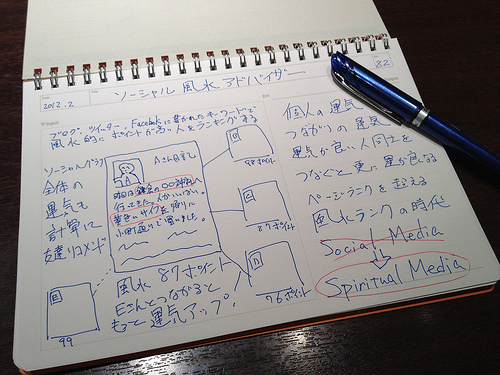 2012.2
ソーシャル風水アドバイザー
82
ブログ、ツイッター、Facebookに書かれたキーワードで
風水的にポイントが高い人をランキングする
ソーシャルグラフ
全体の
運気も
計算に
友達リコメンド
A
人に出会し
昨日は鎌倉の〇〇神社へ
行ってきた。人がいっぱい。
黄色いサイフを帰りに
小町通りで買いました。
B
98ポイント
C
87ポイント
D
76ポイント
E
99
風水 87ポイント
Eさんとつながると
もっと運気アップ!
個人の運気
つながりの運気
運気が良い人同士を
つなぐと更に運が良くなる
ページランクを超える
風水ランクの時代
Social Media
Spiritual Media